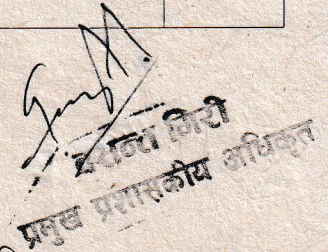 बसन्त गिरी
प्रमुख प्रशासकीय अधिकृत